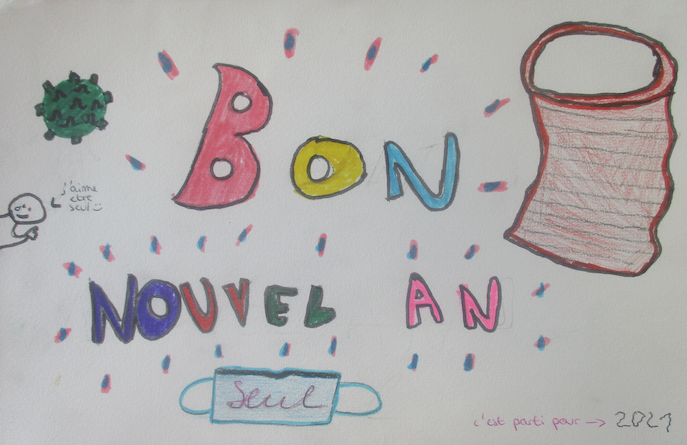 BON
j'aime
etre
seul
NOUVEL AN
seul
c'est parti pour → 2021